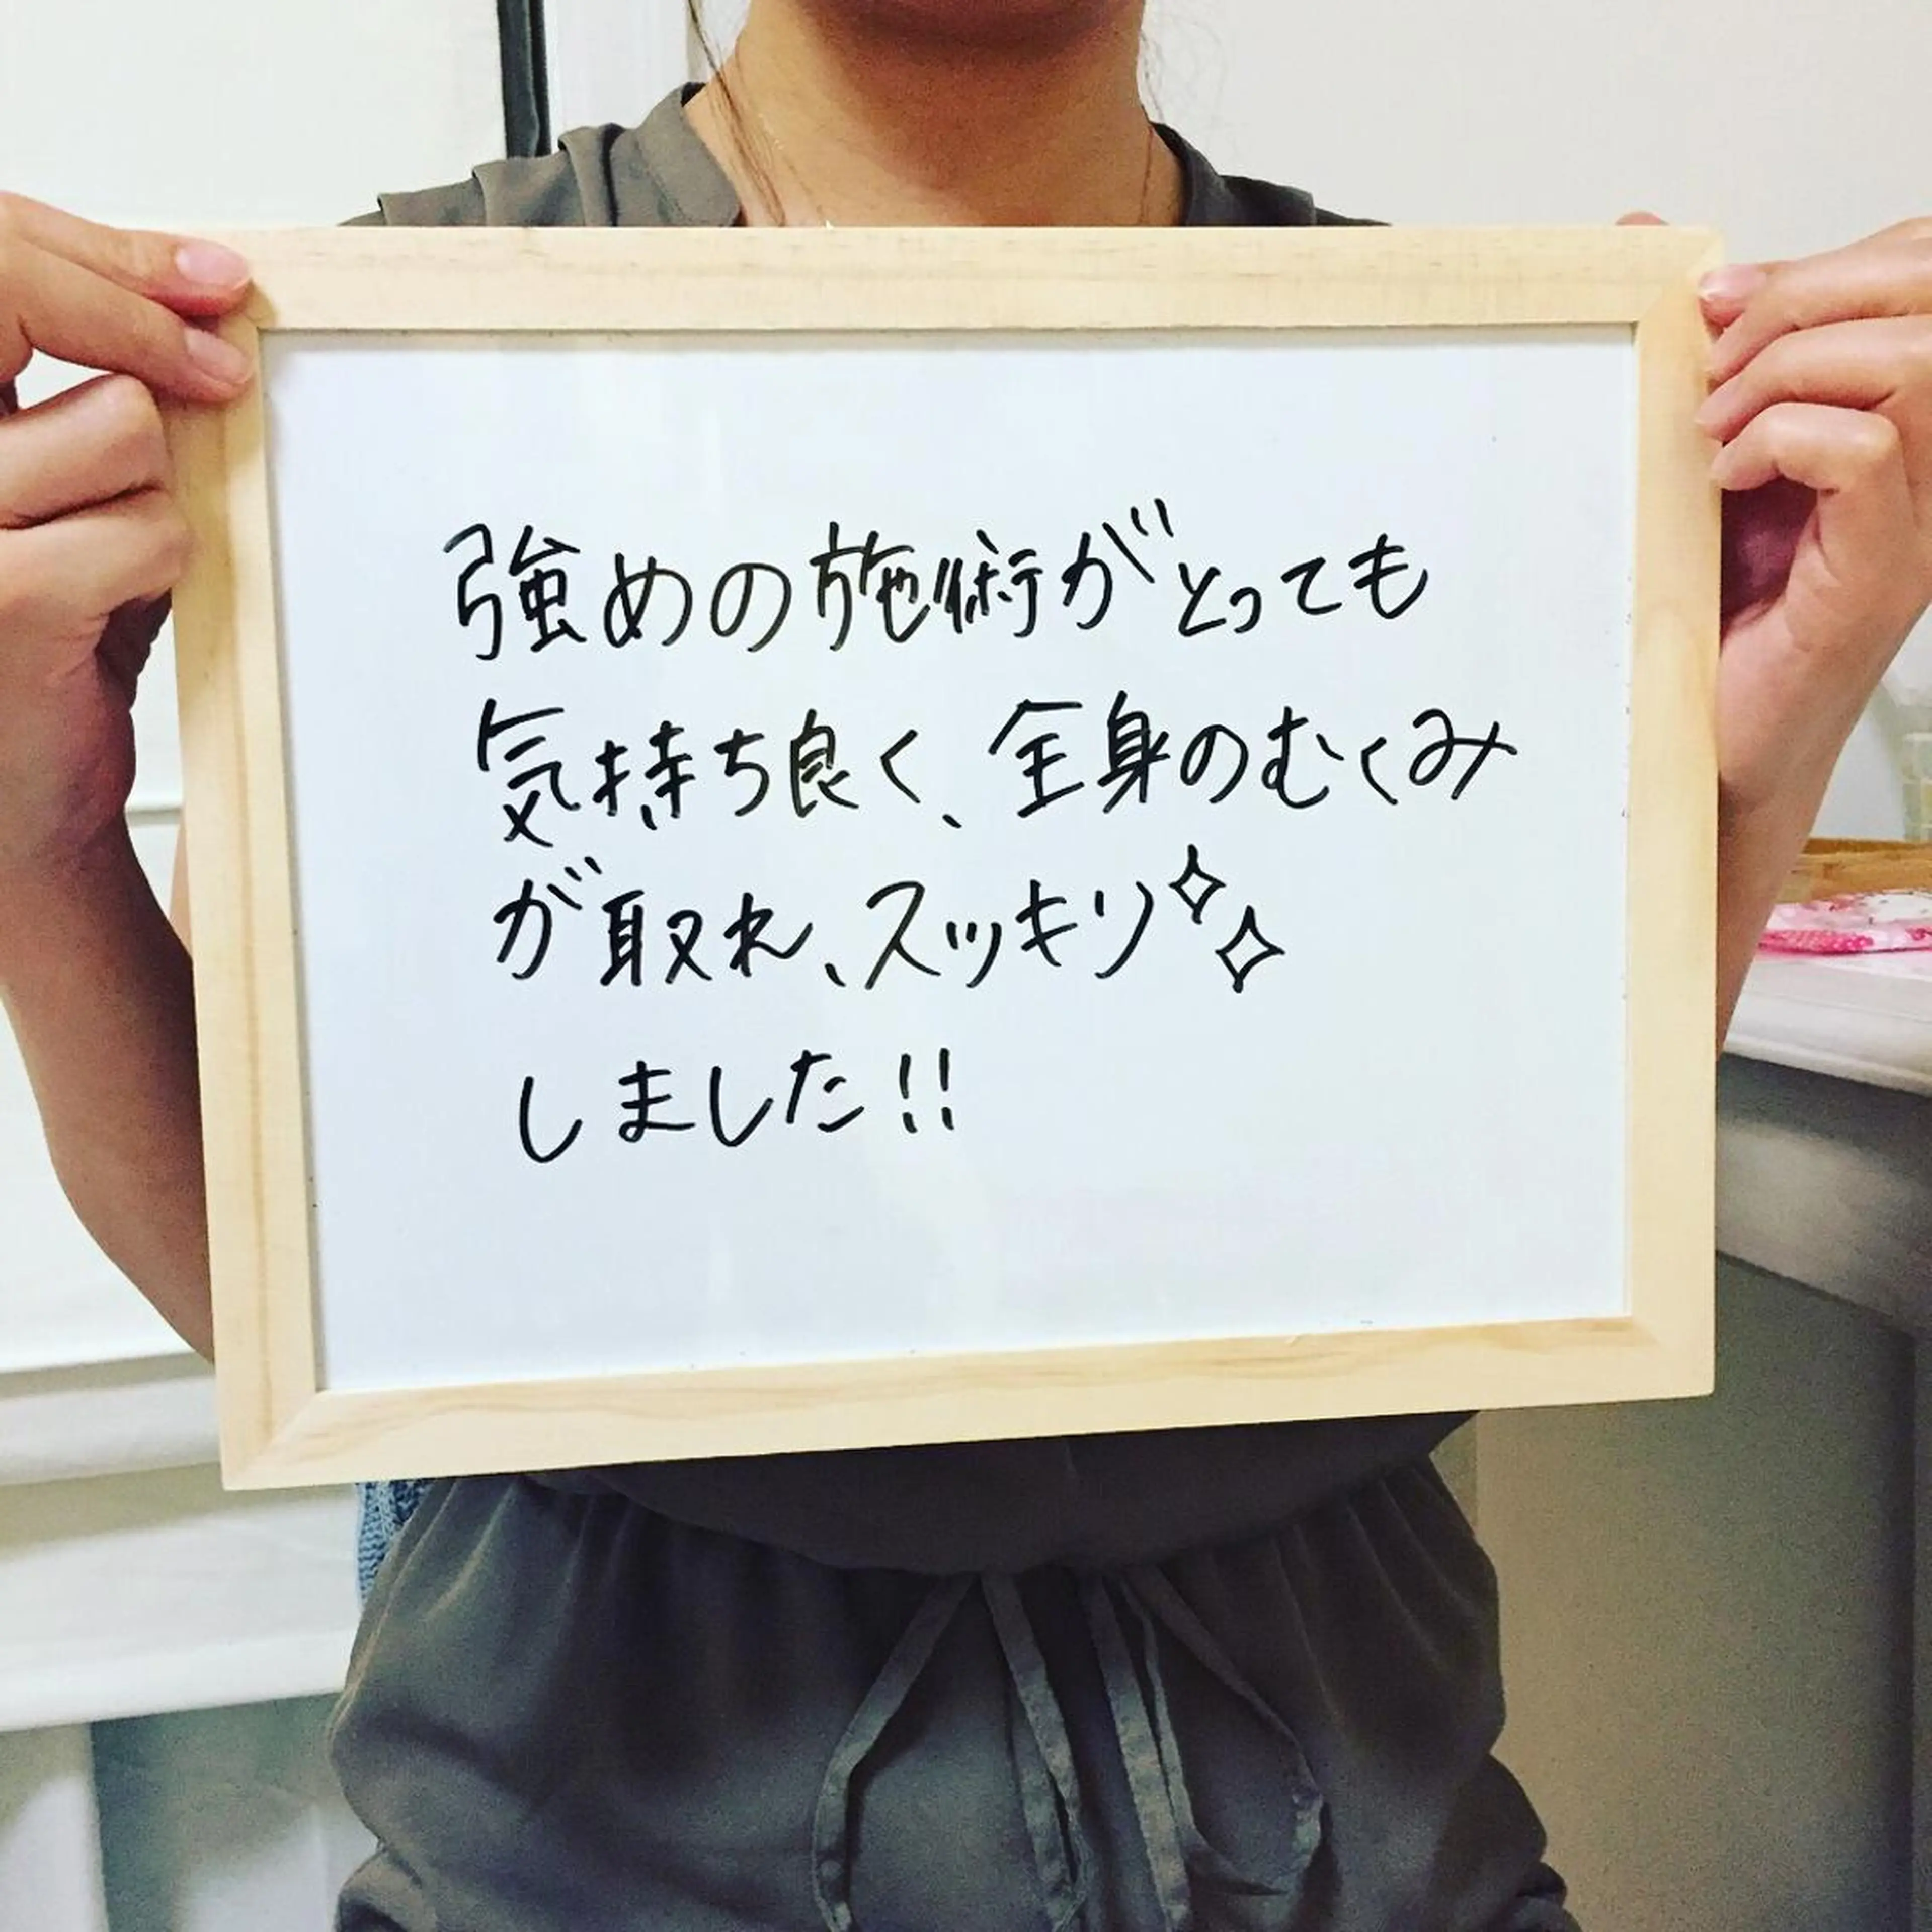 強めの施術がとっても
気持ち良く、全身のむくみ
が取れ、スッキリ✧✧
しました!!